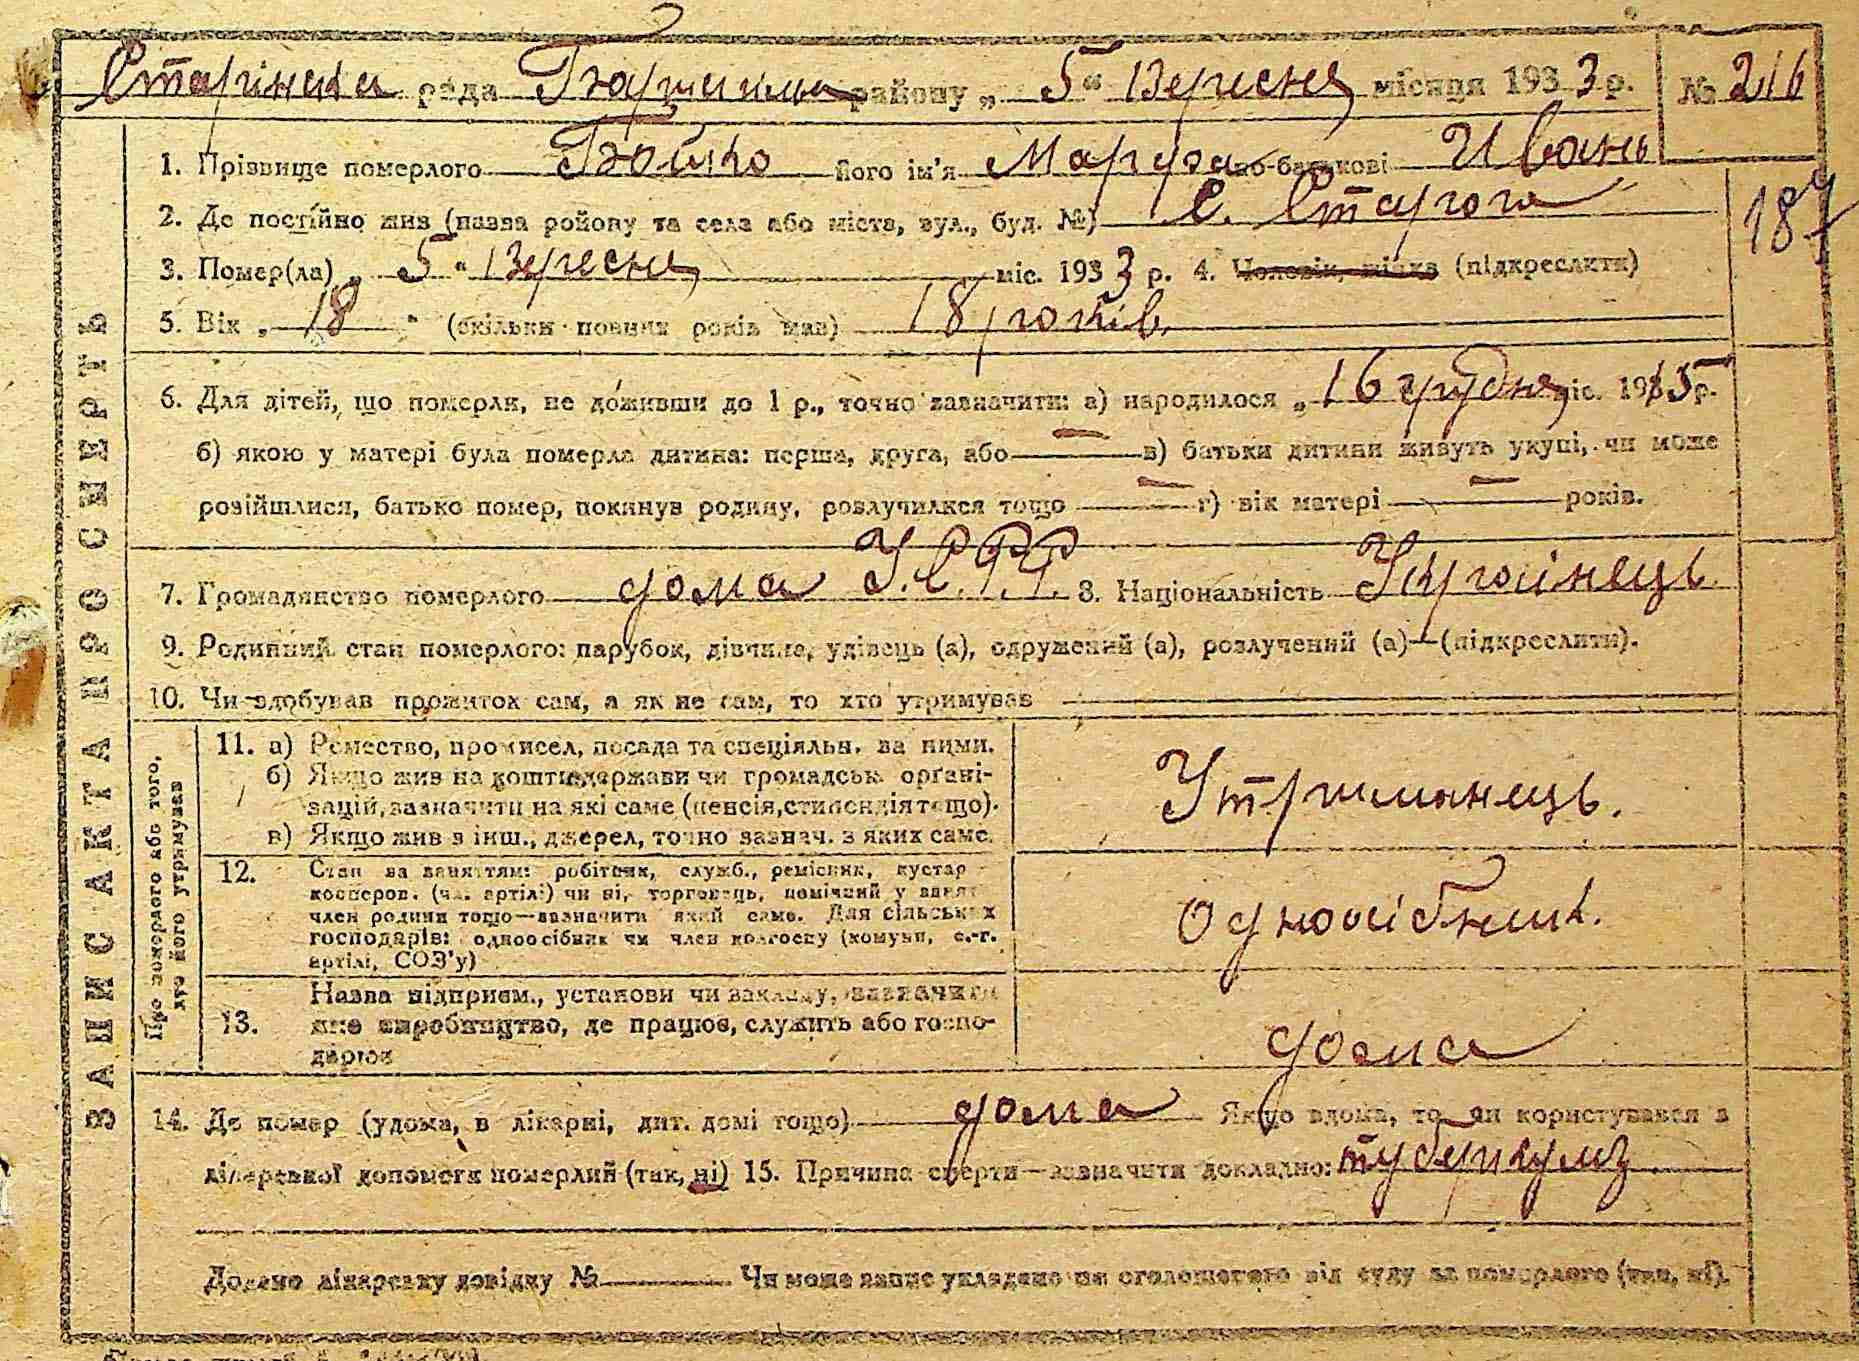 Старінська рада Баришил району „ 5 “ Вересня місяця 1933 р. № 216
1. Прізвище померлого Бойко його ім'я Маруся по-батькові Ивань
187
2. Де постійно жив (назва ройону та села або міста, вул., буд. №) С. Старого
3. Помер(ла) „ 5 “ Вересня міс. 1933 р. 4. Чоловік, жінка (підкреслити)
5. Вік „ 18 “ (скільки повних років мав) 18 років
6. Для дітей, що померли, не доживши до 1 р., точно зазначити: а) народилося „ 16 грудня міс. 1915 р.
б) якою у матері була померла дитина: перша, друга, або — в) батьки дитини живуть укупі, чи може
розійшлися, батько помер, покинув родину, розлучилися тощо — г) вік матері — років.
7. Громадянство померлого дома У.С.Р.Р. 8. Національність Українець
9. Родинний стан померлого: парубок, дівчина, удівець (а), одружений (а), розлучений (а)—(підкреслити).
10. Чи здобував прожиток сам, а як не сам, то хто утримував
ЗАПИС АКТА ПРО СМЕРТЬ
Про померлого або того,
хто його утримував
11. а) Ремество, промисел, посада та спеціяльн. за ними.
б) Якщо жив на кошти держави чи громадськ. органі-
зацій, зазначити на які саме (пенсія, стипендія тощо).
в) Якщо жив з інш., джерел, точно зазнач. з яких саме.
Утриманець.
12. Стан за заняттям: робітник, служб., ремісник, кустар
кооперов. (чл. артілі) чи ні, торговець, помічний у занят
член родини тощо—зазначити який саме. Для сільських
господарів: одноосібник чи член колгоспу (комуни, с.-г.
артілі, СОЗ'у)
Одноосібник.
13. Назва підприєм., установи чи закладу, зазначити
яке виробництво, де працює, служить або госпо-
дарює
дома
14. Де помер (удома, в лікарні, дит. домі тощо) дома Якщо вдома, то як користувався з
лікарської допомоги померлий (так, ні) 15. Причина смерти—зазначити докладно: туберкульз.
Додано лікарську довідку № Чи може запис укладено на оголошенню від суду за померлого (так, ні).